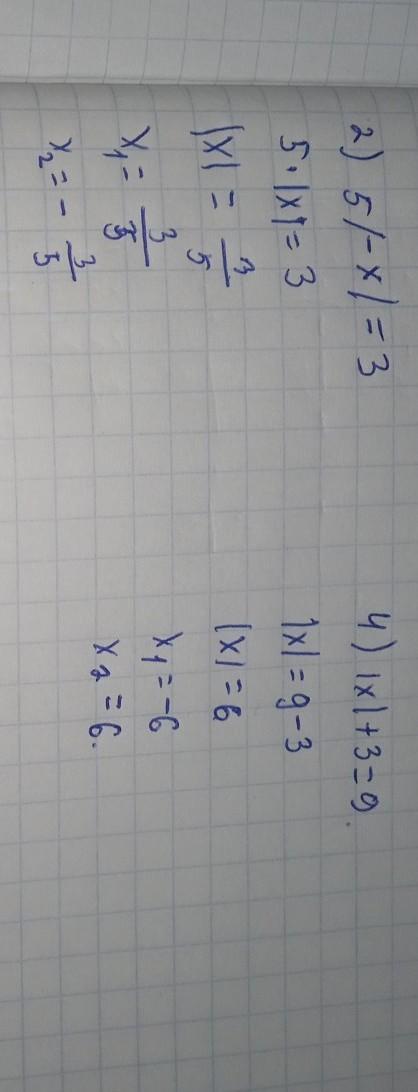 2) 5|-x| = 3
5·|x| = 3
|x| = 3/5
x₁ = 3/5
x₂ = - 3/5
4) |x|+3=9.
|x| = 9-3
|x| = 6
x₁ = -6
x₂ = 6.